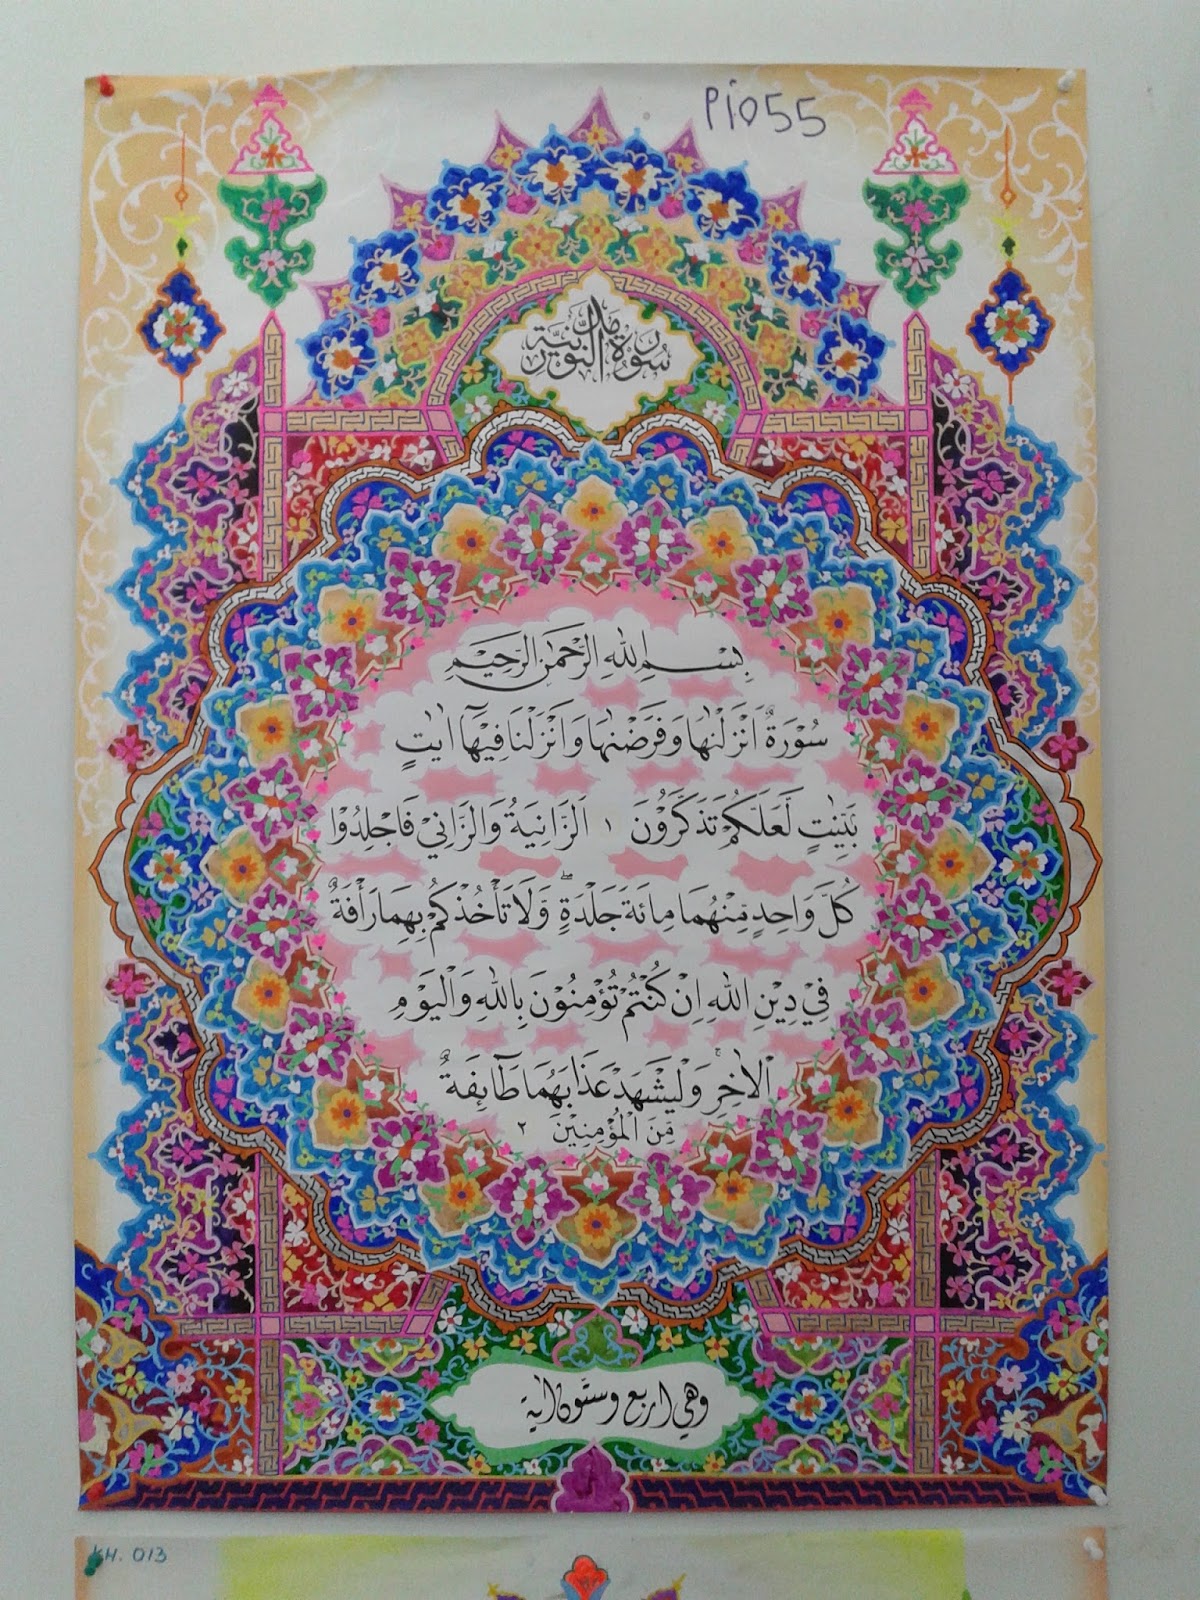 Pi055
سُوْرَةُ النُّوْرِ مَدَنِيَّةٌ
بِسْمِ اللّٰهِ الرَّحْمٰنِ الرَّحِيْمِ
سُوْرَةٌ اَنْزَلْنٰهَا وَفَرَضْنٰهَا وَاَنْزَلْنَا فِيْهَآ اٰيٰتٍ
بَيِّنٰتٍ لَعَلَّكُمْ تَذَكَّرُوْنَ ١ اَلزَّانِيَةُ وَالزَّانِيْ فَاجْلِدُوْا
كُلَّ وَاحِدٍ مِّنْهُمَا مِائَةَ جَلْدَةٍ ۖ وَّلَا تَأْخُذْكُمْ بِهِمَا رَأْفَةٌ
فِيْ دِيْنِ اللّٰهِ اِنْ كُنْتُمْ تُؤْمِنُوْنَ بِاللّٰهِ وَالْيَوْمِ
الْاٰخِرِ ۚ وَلْيَشْهَدْ عَذَابَهُمَا طَآئِفَةٌ
مِّنَ الْمُؤْمِنِيْنَ ٢
وهي اربع وستون اية
KH. 013